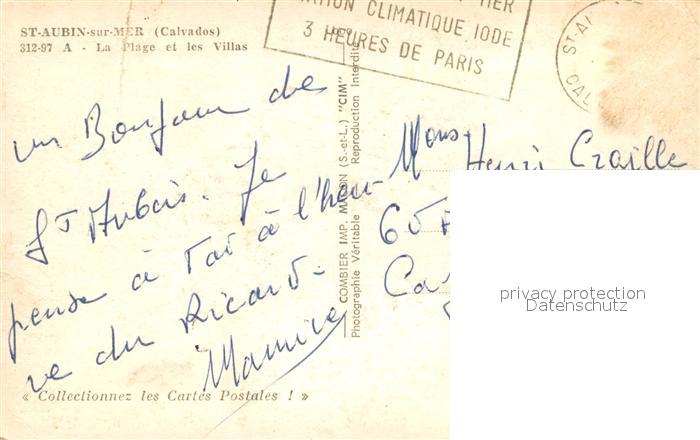 ST-AUBIN-sur-MER (Calvados)
312-97 A - La Plage et les Villas
MER
STATION CLIMATIQUE, IODE
3 HEURES DE PARIS
ST-A
CAL
un Bonjour de
St Aubin. Je
pense à toi à l'heu-
re du Ricard.
Maurice
« Collectionnez les Cartes Postales ! »
COMBIER IMP. MACON (S.-et-L.) "CIM"
Photographie Véritable - Reproduction Interdite
Mons Henri Craille
Ca
privacy protection
Datenschutz